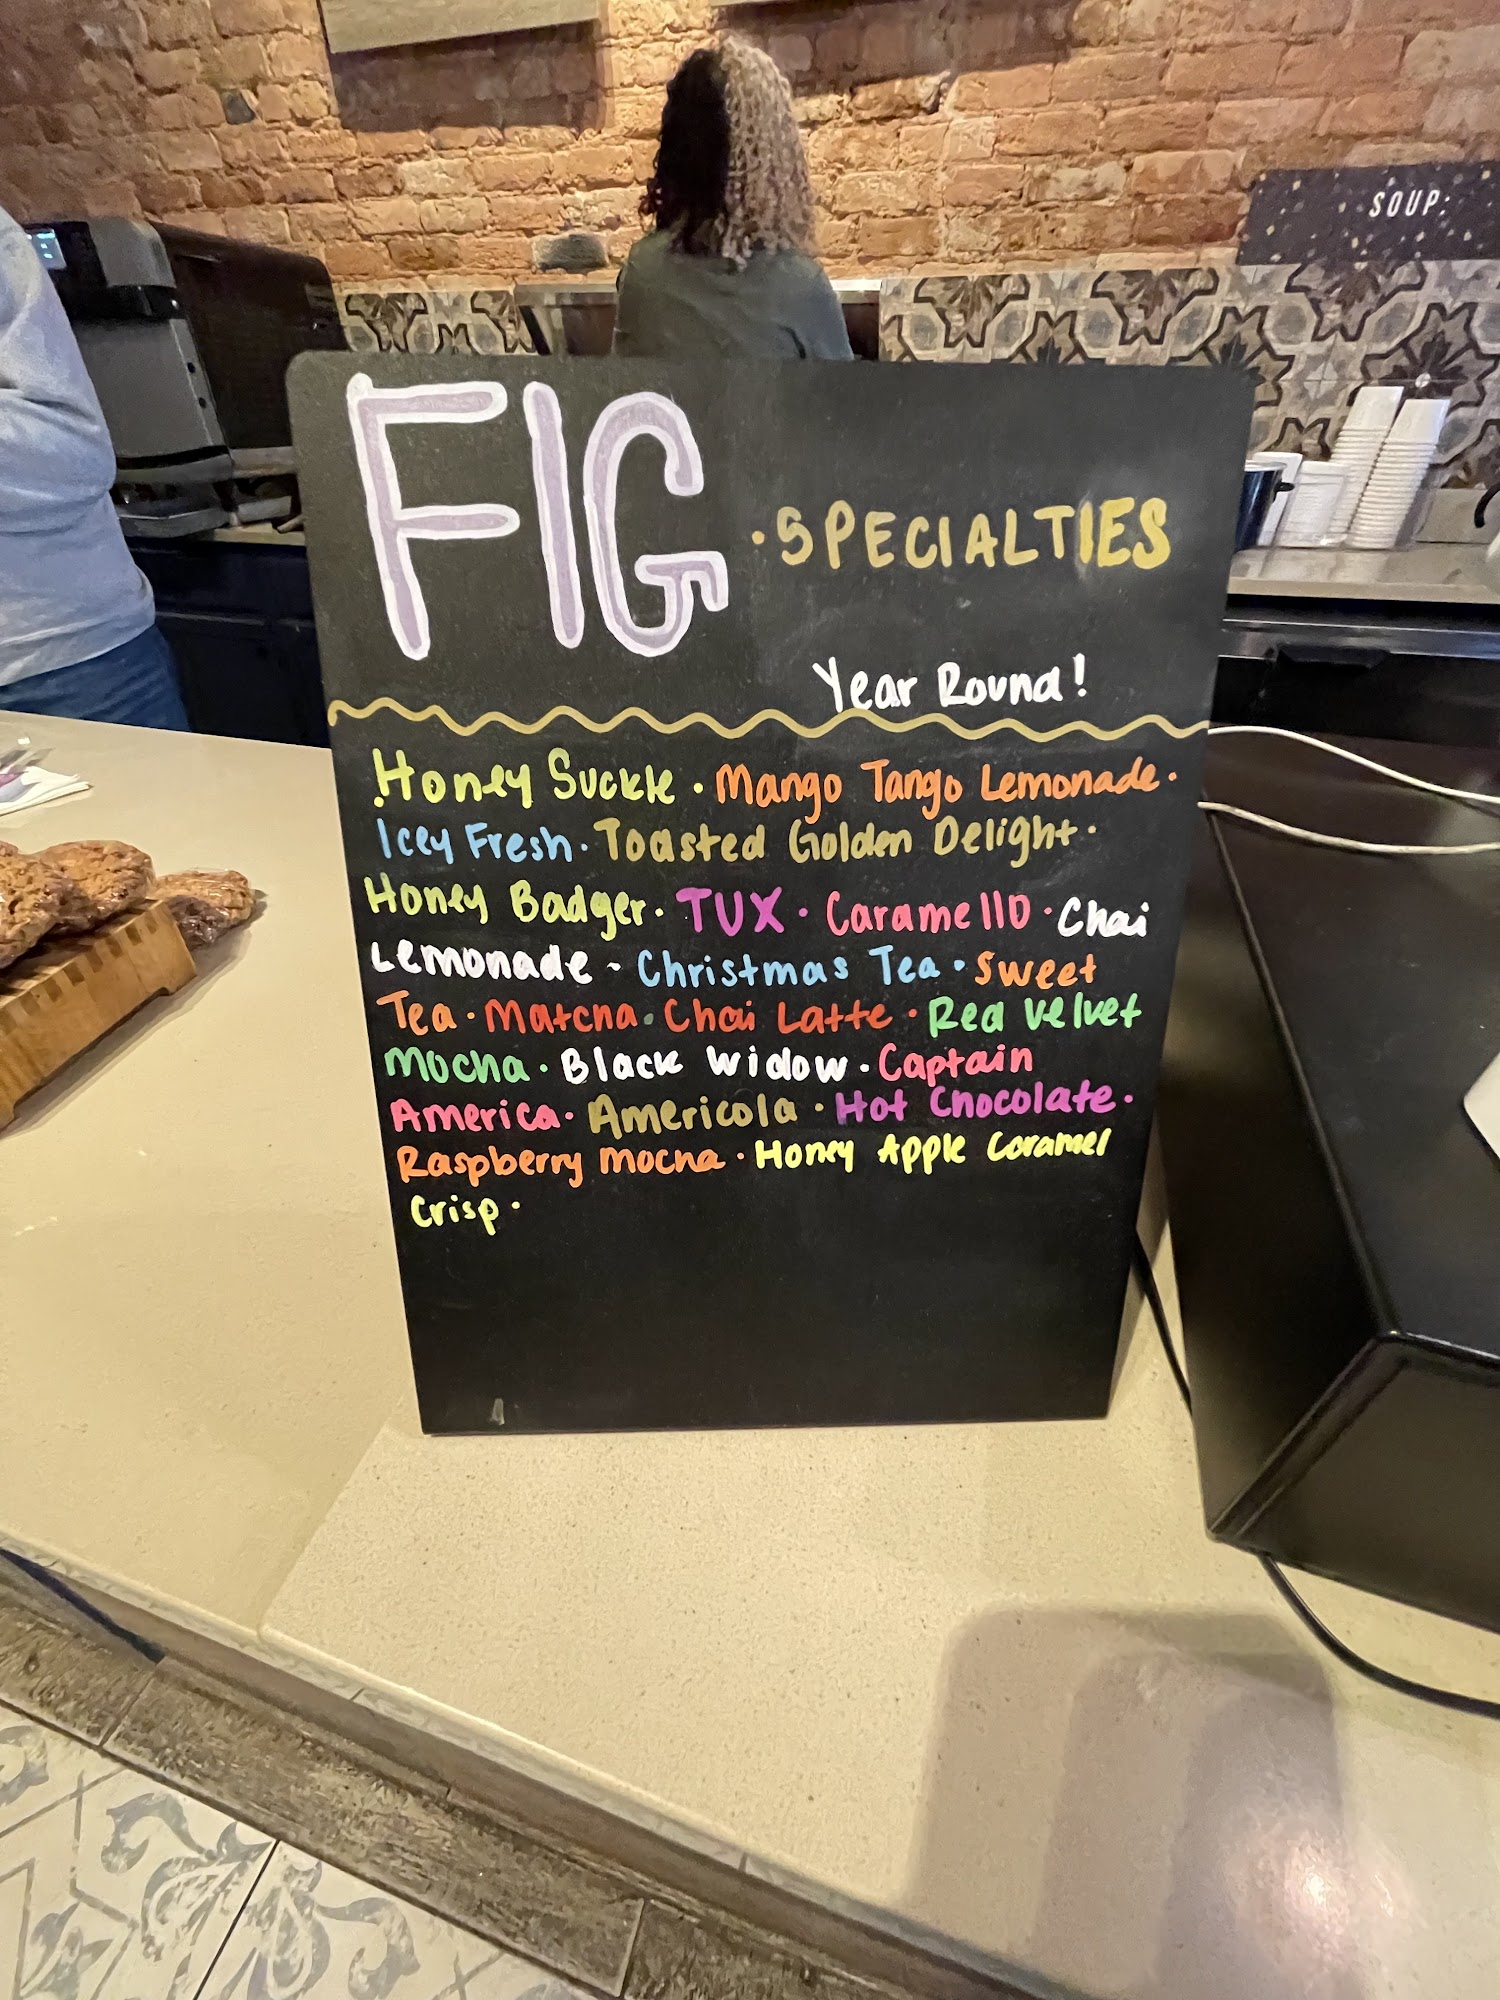 SOUP:
FIG · SPECIALTIES
Year Round!
Honey Suckle · Mango Tango Lemonade ·
Icey Fresh · Toasted Golden Delight ·
Honey Badger · TUX · Caramello · Chai
Lemonade · Christmas Tea · Sweet
Tea · Matcha · Chai Latte · Red Velvet
Mocha · Black Widow · Captain
America · Americola · Hot Chocolate ·
Raspberry Mocha · Honey Apple Caramel
Crisp ·